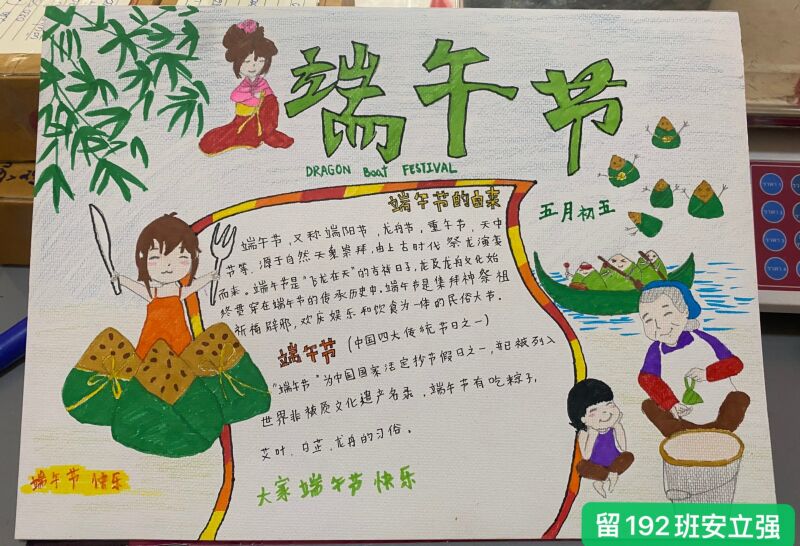 端午节
DRAGON Boat FESTIVAL
五月初五
端午节的由来
端午节，又称端阳节，龙舟节，重午节，天中
节等，源于自然天象崇拜，由上古时代祭龙演变
而来。端午节是"飞龙在天"的吉祥日子，龙及龙舟文化始
终贯穿在端午节的传承历史中。端午节是集拜神祭祖
祈福辟邪，欢庆娱乐和饮食为一体的民俗大节。
端午节（中国四大传统节日之一）
"端午节"为中国国家法定 节假日之一，并已被列入
世界非 质文化遗产名录，端午节有吃粽子，
艾叶、白芷、龙舟的习俗。
大家端午节快乐
端午节快乐
留192班安立强